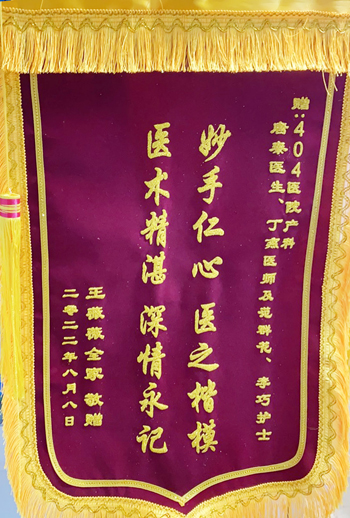 赠:404医院产科
唐秦医生、丁愈医师及范群花、李巧护士
妙手仁心 医之楷模
医术精湛 深情永记
王薇薇全家 敬赠
二零二二年八月八日